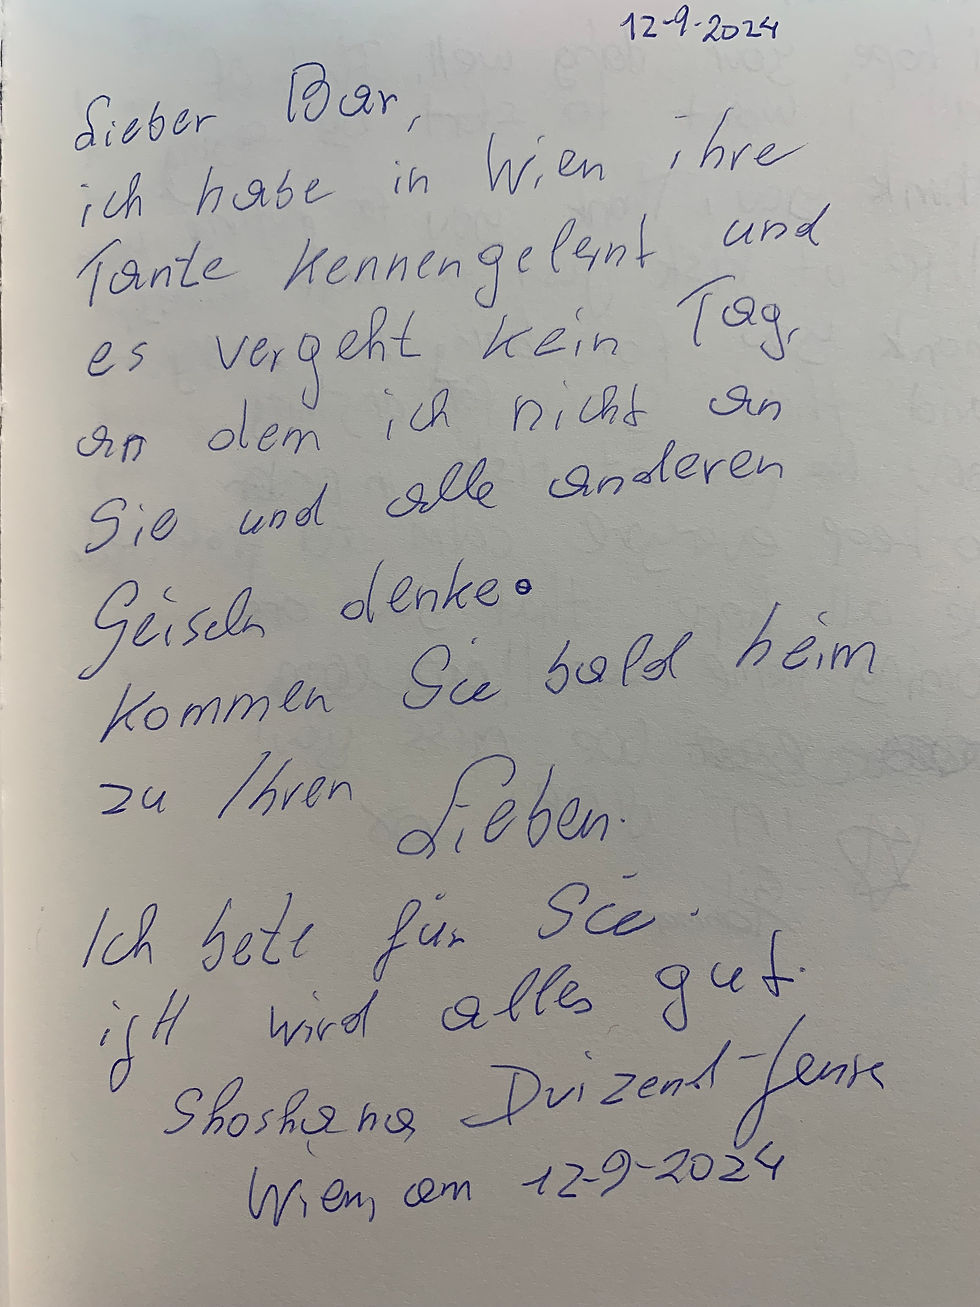 12-9-2024
Lieber Bar,
ich habe in Wien ihre
Tante kennengelernt und
es vergeht kein Tag,
an dem ich nicht an
Sie und alle anderen
Geiseln denke.
Kommen Sie bald heim
zu Ihren Lieben.
Ich bete für Sie.
wird alles gut.
Shoshana Duizend-Jensen
Wien, am 12-9-2024